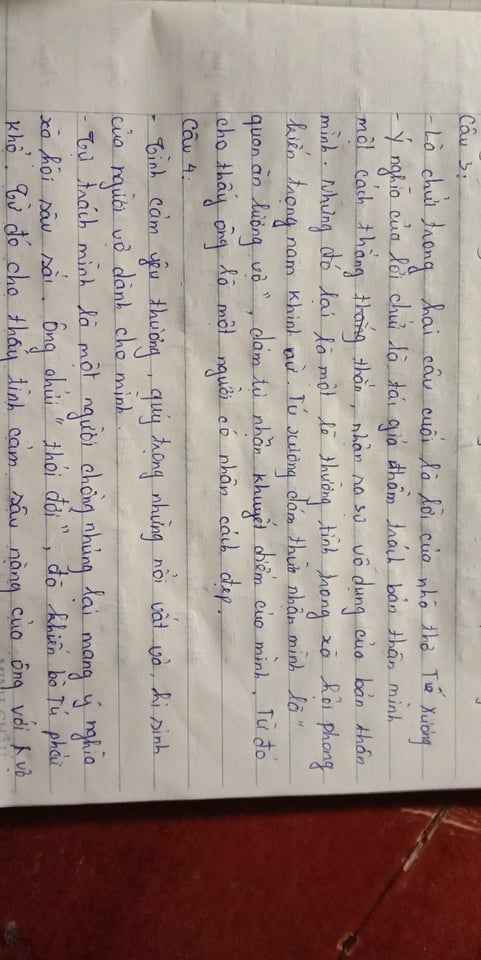 Câu 3:
- Là chửi trong hai câu cuối là lời của nhà thơ Tú Xương
- Ý nghĩa của lời chửi là tác giả thầm trách bản thân mình
một cách thẳng thắng thắn, nhận ra sự vô dụng của bản thân
mình. Nhưng đó lại là một lẽ thường tình trong xã hội phong
kiến trọng nam khinh nữ. Tú Xương dám thừa nhận mình là "
quan ăn lương vợ", dám tự nhận khuyết điểm của mình. Từ đó
cho thấy ông là một người có nhân cách đẹp.
Câu 4:
- Tình cảm yêu thương, quý trọng những nỗi vất vả, hi sinh
của người vợ dành cho mình.
- Tự trách mình là một người chồng nhưng lại mang ý nghĩa
xã hội sâu sắc. Ông chửi "thói đời", đã khiến bà Tú phải
khổ. Từ đó cho thấy tình cảm sâu nặng của ông với vợ